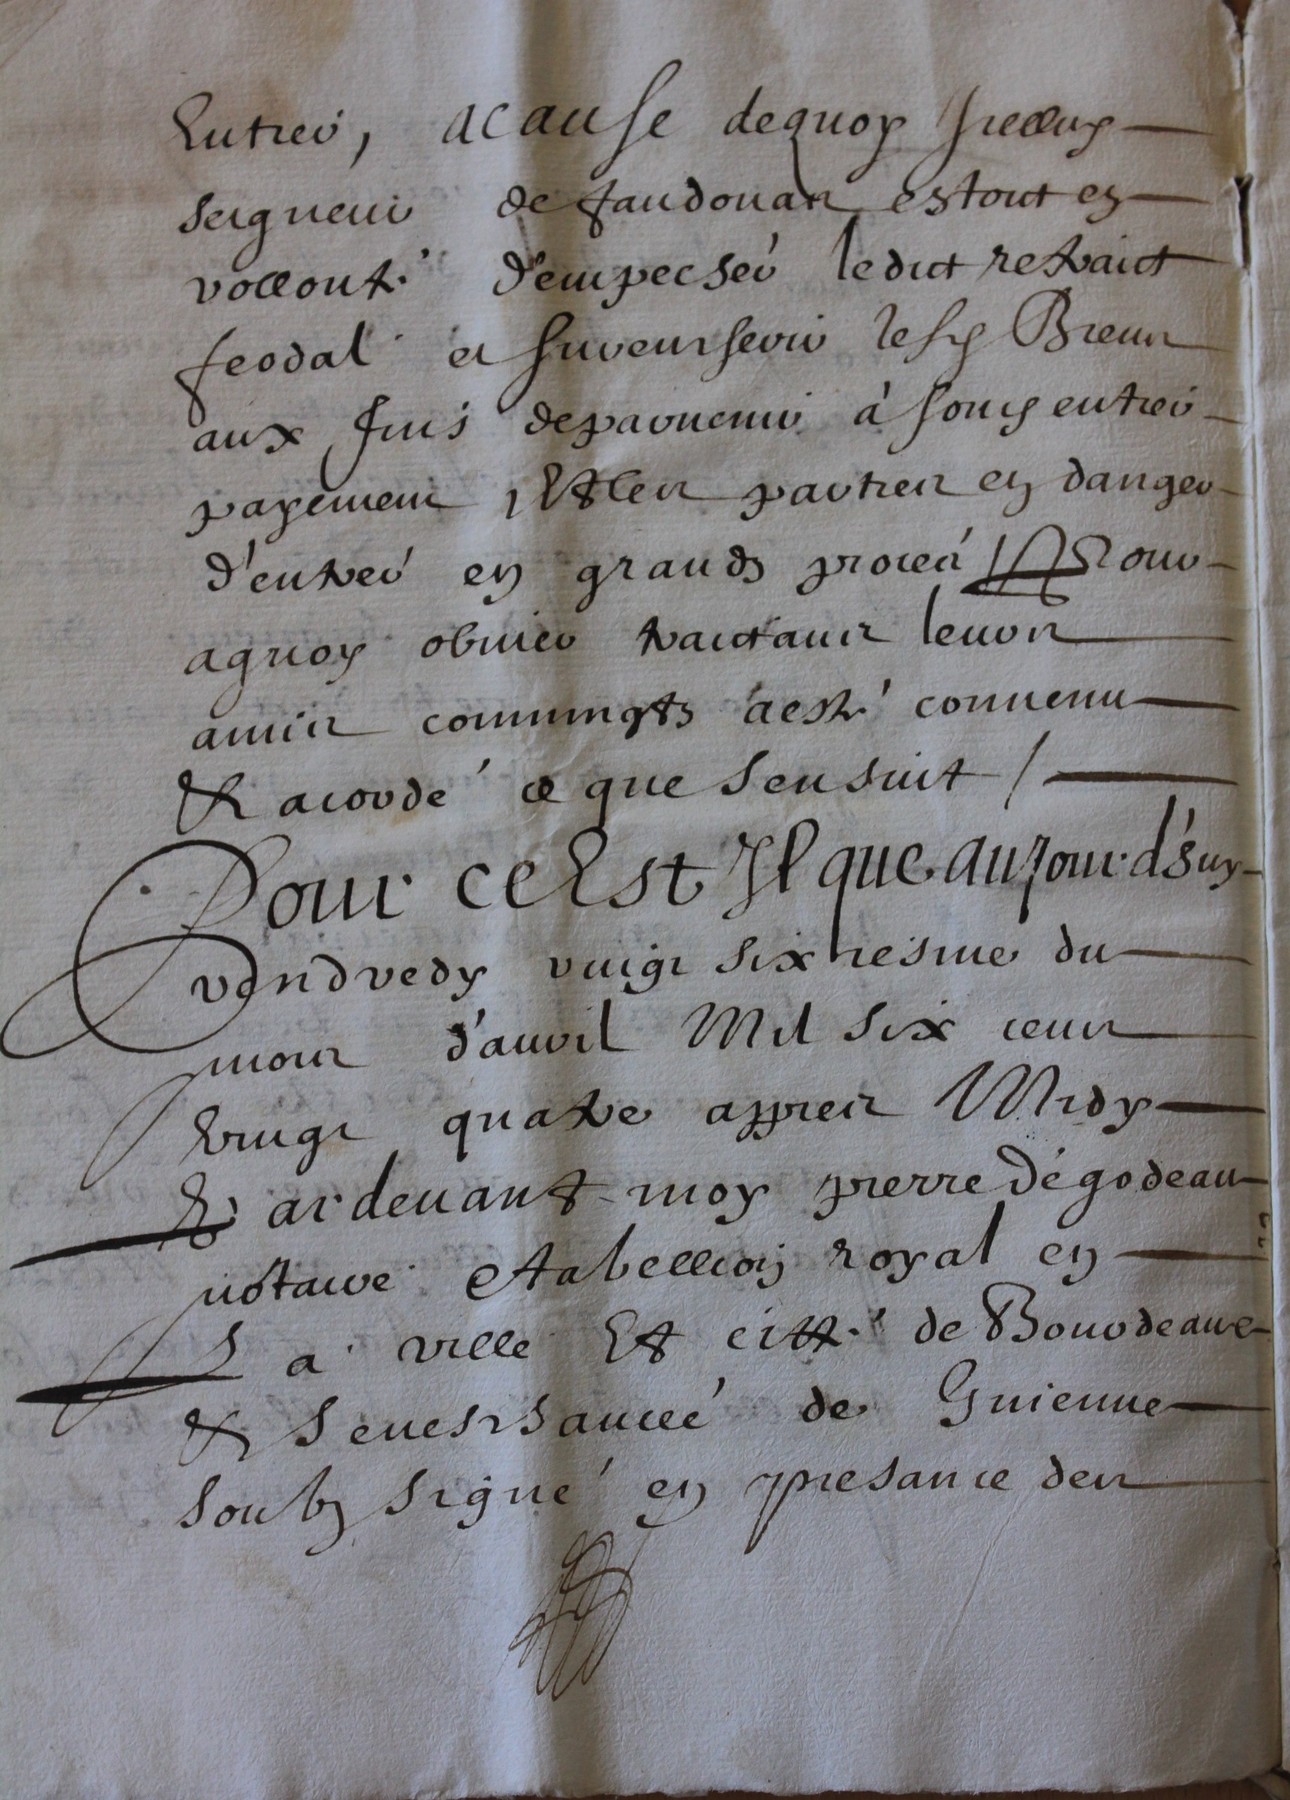 Entier, acause dequoy Icelluy
seigneur de faudouas estoit en
vollonté d'empescher ledict retraict
feodal et surencherir lesd Biens
aux fins deparvenir à son entier
payement, Et les parties en danger
d'entrer en grands procés / Pour
aquoy obvier traictans leurs
amis communs a esté convenu
Et acordé ce que sensuit /
Pour ce Est Il que aujourd'huy
vendredy vingt sixhiesme du
mois d'apvril Mil six cens
vingt quatre appres Midy
Pardevant moy pierre dégodeau
notaire Et tabellion royal en
La ville Et citté de Bourdeaux
Et Seneschaucée de Guienne
soubz signé en presance des